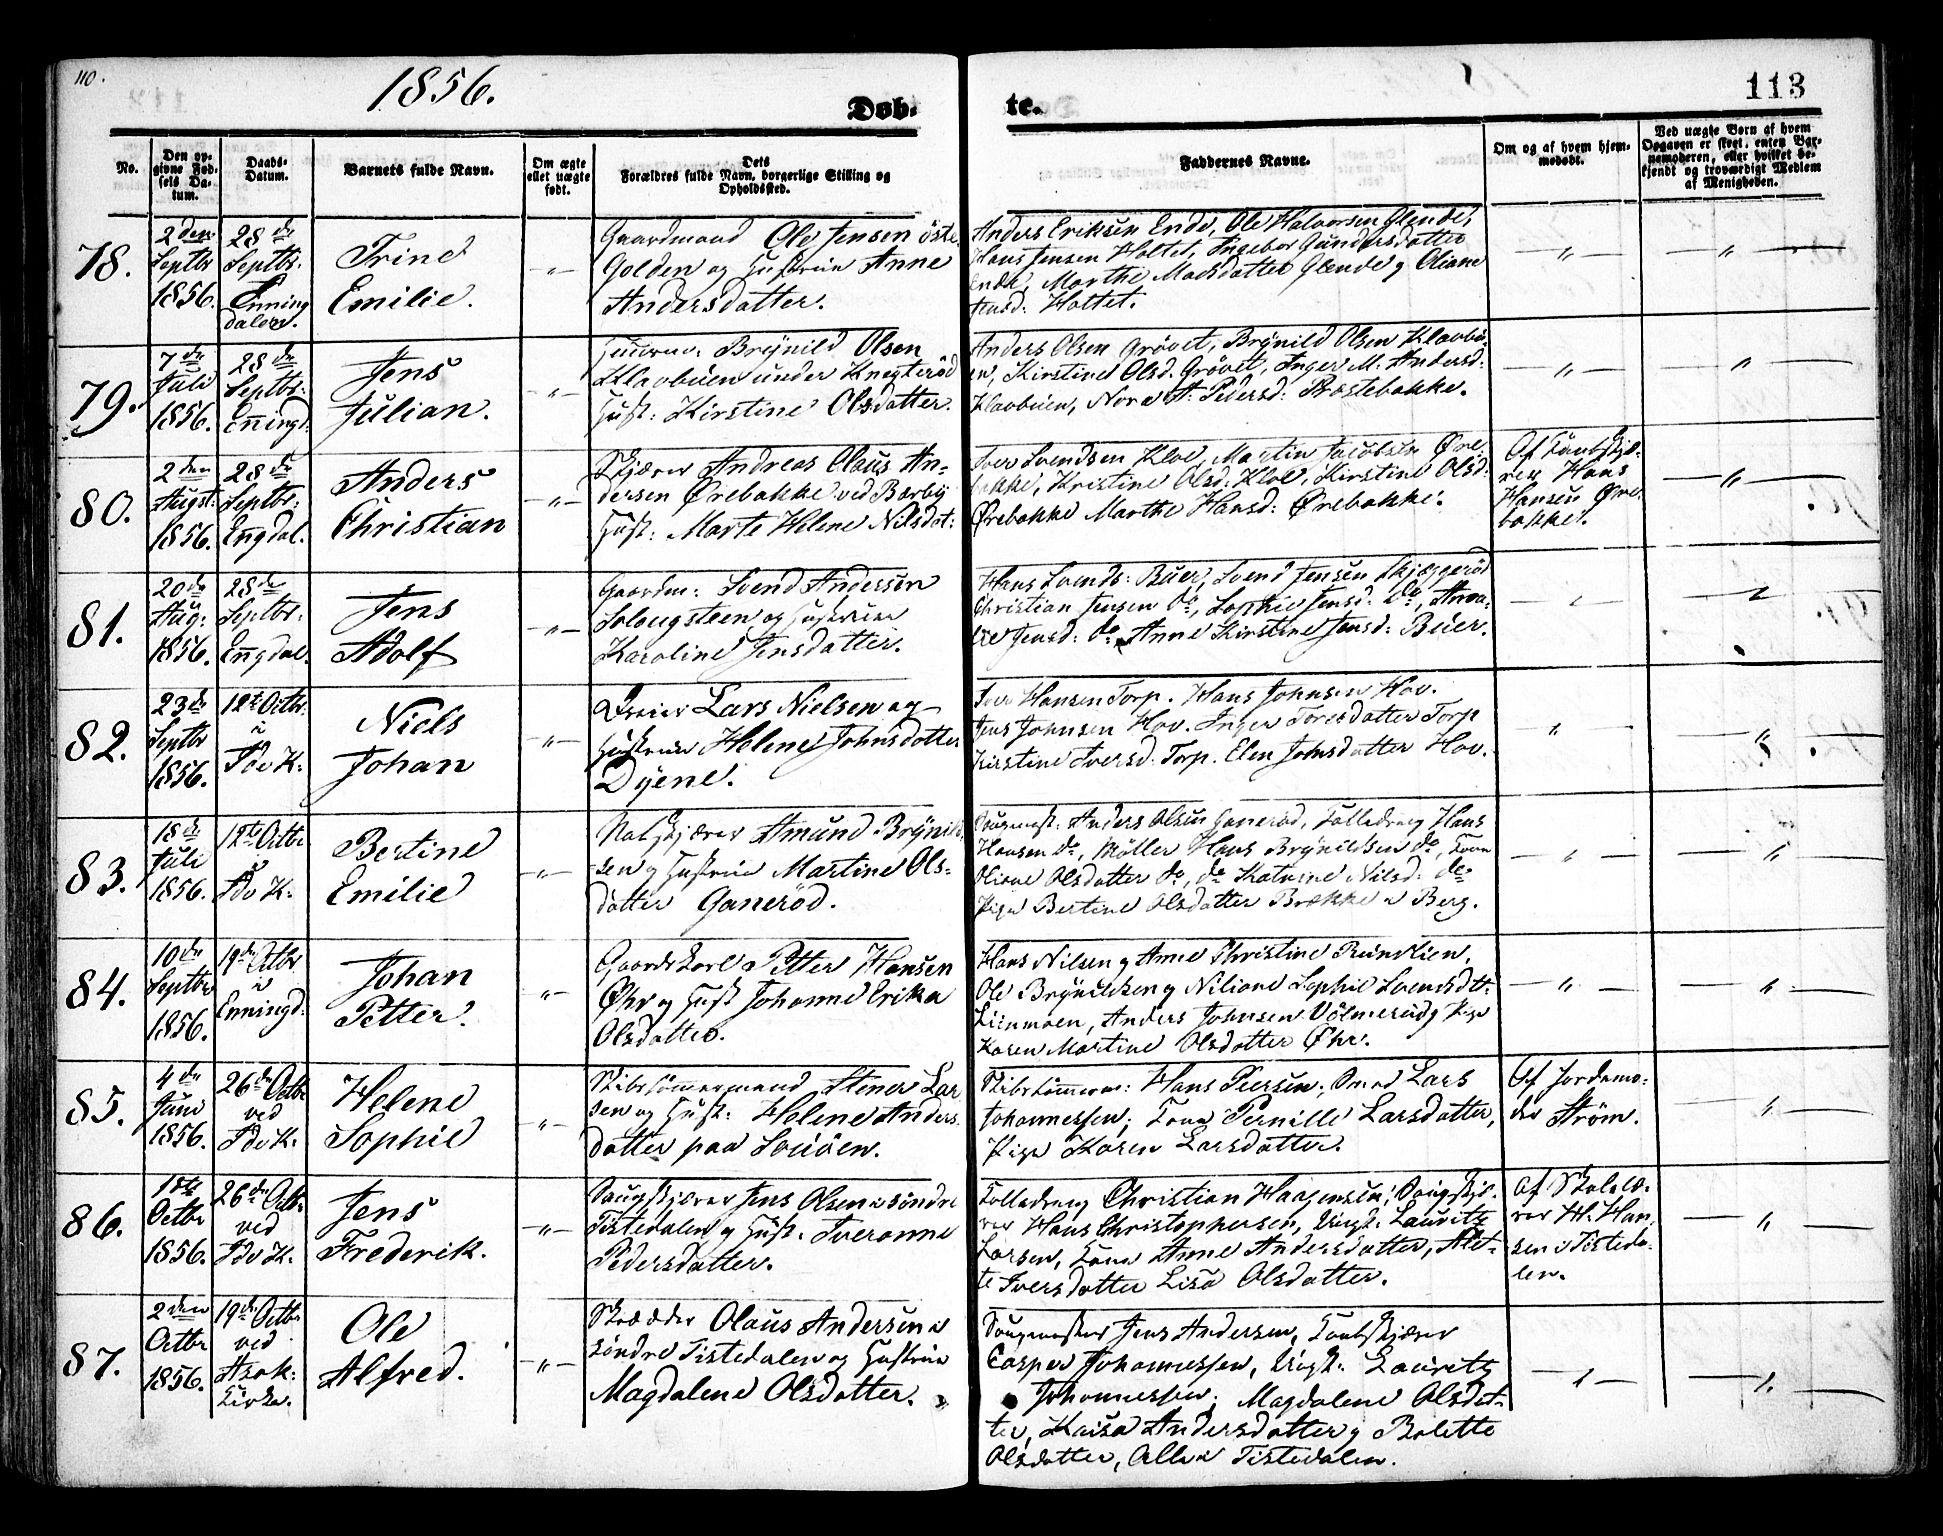 110.
1856.
Døb-
te.
113
No.
Den op-
givne Fød-
sels Da-
tum.
Daabs-
Datum.
Barnets fulde Navn.
Om ægte
ellet uægte
født.
Dets
Forældres fulde Navn, borgerlige Stilling og
Opholdssted.
Faddernes Navne.
Om og af hvem hjem-
medøbt.
Ved uægte Børn af hvem
Opgaven er skeet, enten Bar-
nemoderen, eller hvilket be-
kjendt og troværdigt Medlem
af Menigheden.
78.
2den
Septbr
1856.
28de
Septbr.
Enning
dalen.
Trine
Emilie.
-"-
Gaardmand Ole Jensen øste
Golden og Hustrue Anne
Andersdatter.
Anders Eriksen Ende, Ole Halvorsen Glende,
Hans Jensen Holtet, Ingebor Gundersdatter
Ende, Marthe Madsdatter Glende og Oliane
Hansd: Holtet.
-"-
-"-
79.
7de
Juli
1856.
28de
Septbr.
Enningd.
Jens
Julian.
-"-
Huusm: Brynild Olsen
Klavbuen under Knegterød
Hust: Kirstine Olsdatter.
Anders Olsen Grøvet, Brynild Olsen Klavbu-
en, Kirstine Olsd. Grøvet, Inger M. Andersd:
Klavbuen, Nora A. Pedersd: Bastebakke.
-"-
-"-
80.
2den
Augst:
1856.
28de
Septbr.
Engdal.
Anders
Christian
-"-
Skjærer Andreas Olaus An-
dersen Ørebakke ved Bærby
Hust: Marte Helene Nilsdat:
Iver Svendsen Kloe, Martin Jacobsen Øre-
bakke, Kristine Olsd. Kloe, Kirstine Olsd:
Ørebakke Marthe Hansd: Ørebakke.
Af Tambskjæ-
rer Hans
Hansen Øre-
bakke.
-"-
81.
20de
Aug:
1856.
28de
Septbr.
Engdal.
Jens
Adolf
-"-
Gaardm: Svend Andersen
Solougsteen og Hustrue
Karoline Jensdatter.
Hans Svends: Buer, Svend Jensen Skjæggerød
Christian Jensen do, Sophie Jensd: do, Anna-
Jensd: do Anne Kirstine Jensd: Buer.
-"-
-"-
82.
23de
Septbr
1856.
12te Octbr.
i
Ide K:
Niels
Johan
-"-
Lars Nielsen og
Hustrue Helene Johnsdatter
Dyene.
Iver Hansen Torp. Hans Johnsen Hov.
Jens Johnsen Hov. Inger Toresdatter Torp
Kirstine Iversd. Torp. Elen Johnsdatter Hov.
"
"
83.
18de
Juli
1856.
12te Octbr
i
Ide K:
Bertine
Emilie
-"-
Amund Brynild
sen og Hustrue Martine Ols-
datter Ganerød.
Saugmest: Anders Olsen Ganerød, Tolledreng Hans
Hansen do, Møller Hans Brynildsen do, Kone
Oliane Olsdatter do, do Katrine Nilsd: do
Pige Bertine Olsdatter Brække i Berg.
-"-
"
84.
10de
Septbr
1856.
19de Octbr
i
Enningd.
Johan
Petter.
-"-
Gaardskarl Petter Hansen
Øhr og Hust Johanne Erika
Olsdatter.
Hans Nilsen og Anne Christine
Ole Brynildsen og Niliane Sophie Svendsdt:
Liinmoen, Anders Johnsen Volmerud og Pige
Karen Martine Olsdatter Øhr.
-"-
-"-
85.
4de
Juni
1856.
26de Octbr
ved
Ide K:
Helene
Sophie
-"-
Skibstømmermand Stener Lar
sen og Hust: Helene Anders-
datter paa Sauøen.
Skibstømmerm: Hans Piersen; Smed Lars
Johannessen; Kone Pernille Larsdatter,
Pige Karen Larsdatter.
Af Jordemo-
der Strøm.
"
86.
18de
Octbr
1856.
26de Octbr.
ved
Ide K:
Jens
Frederik.
-"-
Saugskjærer Jens Olsen i søndre
Tistedalen og Hust. Iveranne
Pedersdatter.
Tolledreng Christian Haagensen, Saugskjæ-
rer Hans Christophersen, Ungk: Lauritz
Larsen, Kone Anne Andersdatter, Alet-
te Iversdatter Lisa Olsdatter.
Af Skolelæ-
rer H. Han-
sen i Tisteda-
len.
-"-
87.
2den
Octbr
1856.
19de Octbr
ved
Asak:
Kirke.
Ole
Alfred.
-"-
Skrædder Olaus Andersen i
søndre Tistedalen og Hustrue
Magdalene Olsdatter.
Saugmester Jens Andersen, Tambskjærer
Casper Johannessen, Ungk: Lauritz
Johannessen; Magdalene Olsdat-
ter, Kaisa Andersdatter og Bolette
Olsdatter, Alle i Tistedalen.
-"-
-"-